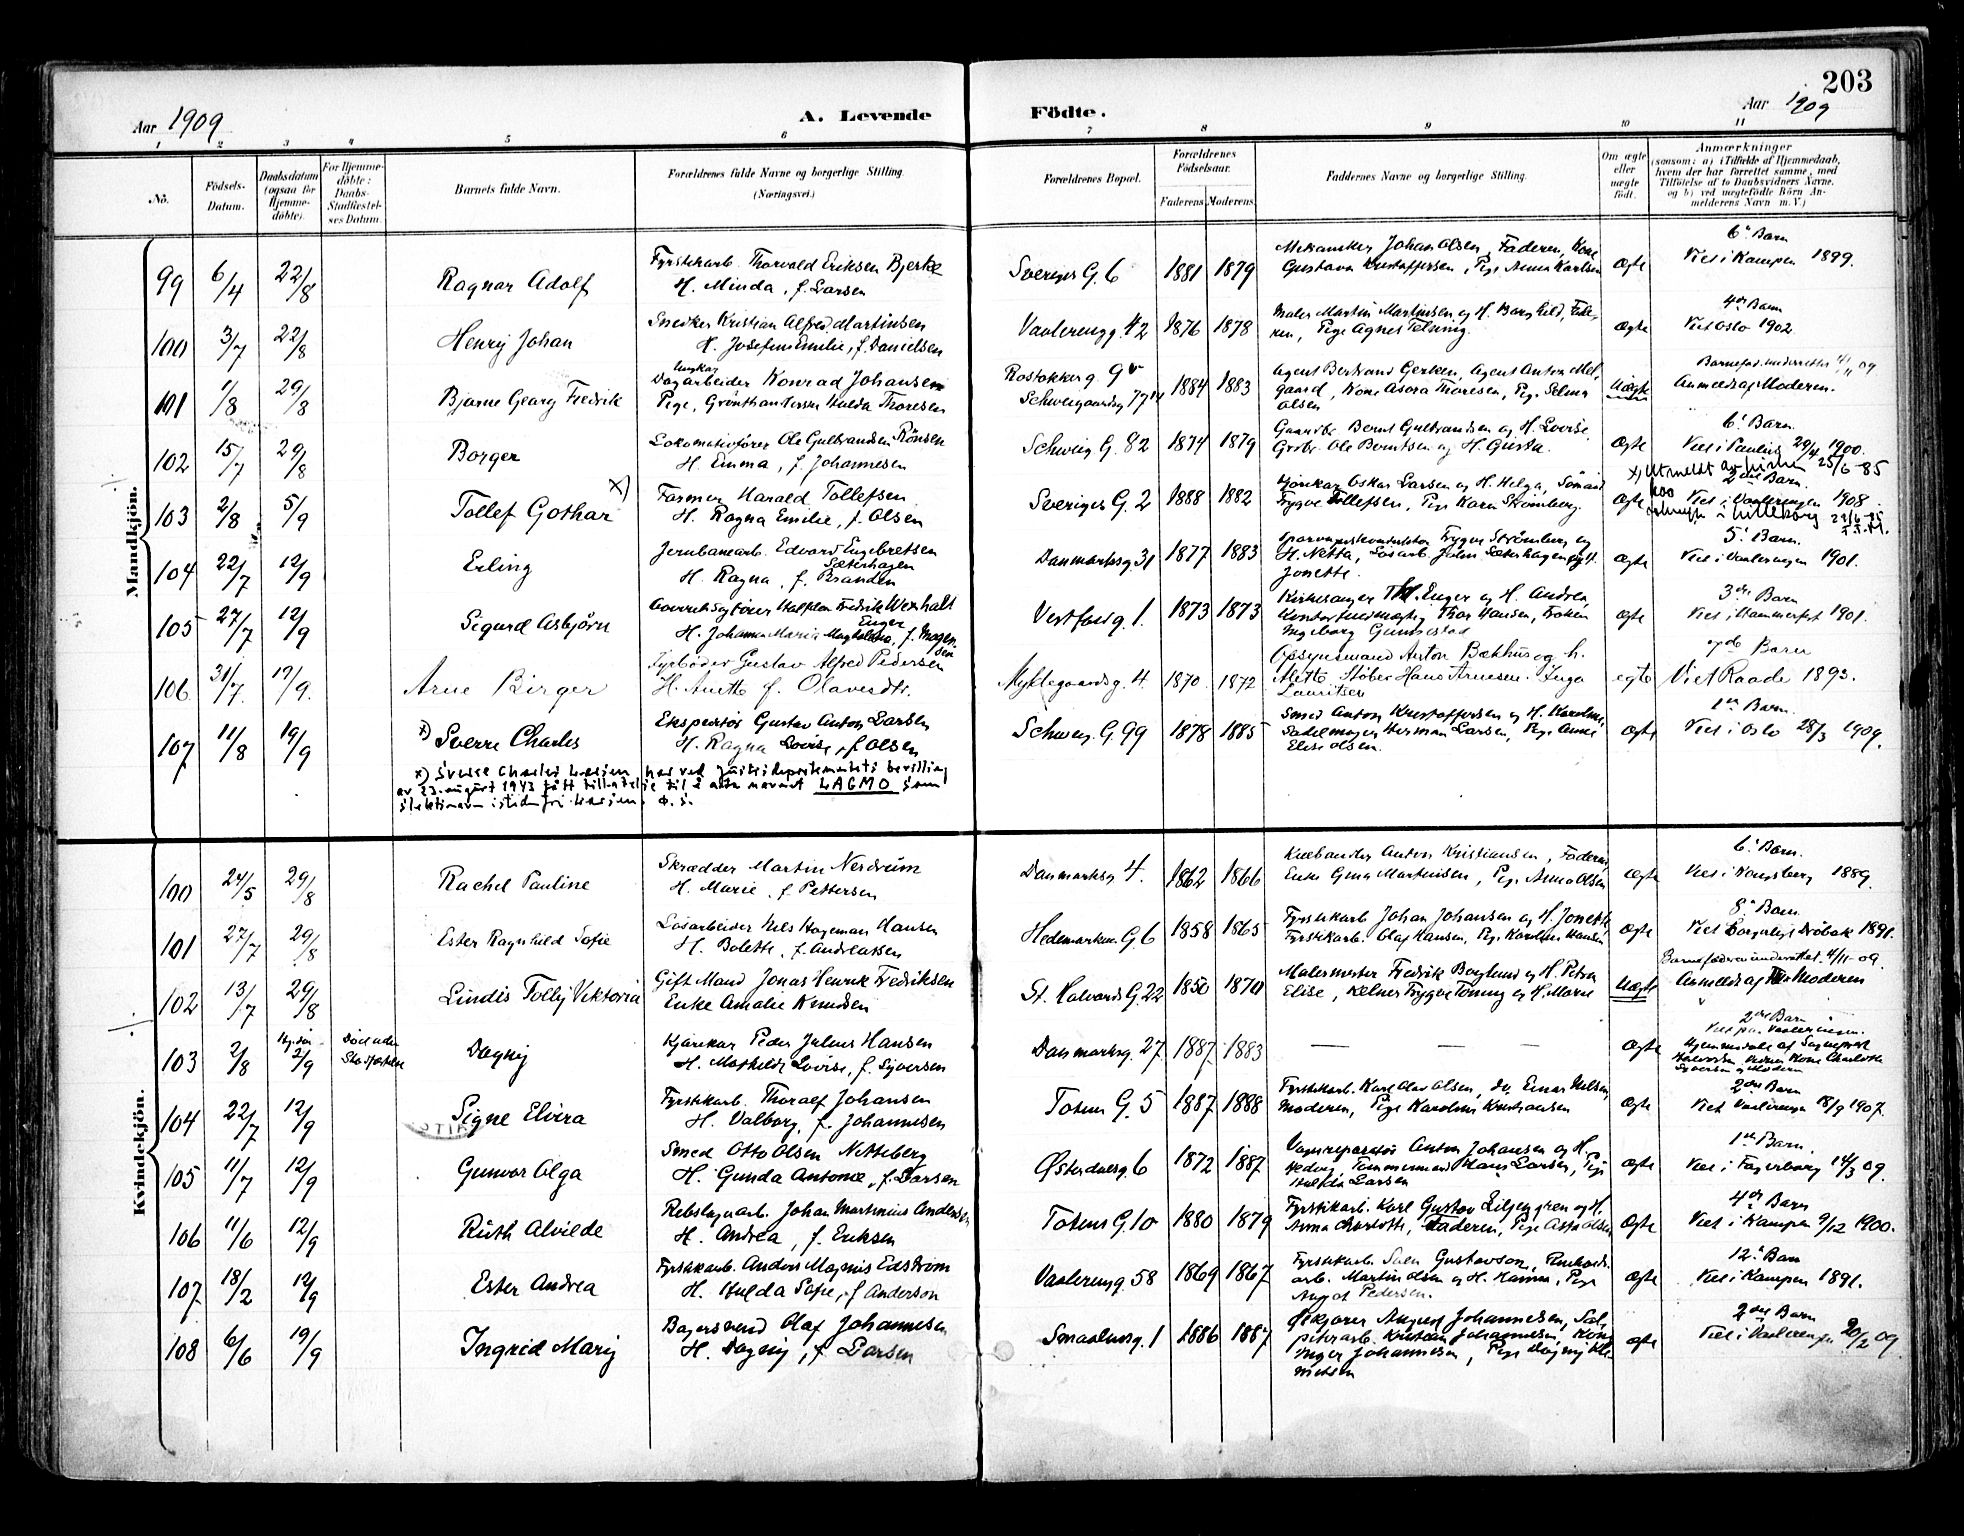 203
Aar 1909
A. Levende
Födte.
Aar 1909
1 2 3 4 5 6 7 8 9 10 11
No.
Födsels-Datum.
Daabsdatum (ogsaa for Hjemmedöbte).
For Hjemmedöbte: Daabs-Stadfæstelses Datum.
Barnets fulde Navn.
Forældrenes fulde Navne og borgerlige Stilling. (Næringsvei.)
Forældrenes Bopæl.
Forældrenes Födselsaar.
Faderens. Moderens.
Faddernes Navne og borgerlige Stilling.
Om ægte eller uægte födt.
Anmærkninger
(saasom: a) i Tilfælde af Hjemmedaab, hvem der har forrettet samme, med Tilföielse af to Daabsvidners Navne, og b) ved uegtefödte Börn Anmelderens Navn m. V.)
Mandkjön.
99 6/4 22/8 Ragnar Adolf
Fyrstikarb. Thorvald Eriksen Bjerke
H. Minda, f. Larsen
Sveriges G. 6 1881 1879
Johan Olsen, Faderen, Kone
Gustava Kristoffersen, Pige Anna Karlsen
ægte
6' Barn
Viet i Kampen 1899.
100 3/7 22/8 Henry Johan
Snedker Kristian Alfred Martinsen
H. Josefine Emilie, f. Danielsen
Vaalerengg. 42 1876 1878
Maler Martin Martinsen og H. Borghild, Fade-
ren, Pige Agnes
ægte
4de Barn
Viet Oslo 1902
101 1/8 29/8 Bjarne Georg Fredrik
Ungkar
Dagarbeider Konrad Johansen
Pige, Hulda Thoresen
Rostokkerg. 9
Schweigaardsg 77 1884 1883
Agent Bertrand Gerken, Agent Anton
Kone Asora Thoresen, Pige Selma
Olsen
Uægte
Barnefad. underrettet 4/11 09
Anm. af Moderen.
102 15/7 29/8 Borger
Lokomotivfører Ole Gulbrandsen Rönsen
H. Emma, f. Johannesen
Schweig G. 82 1874 1879
Gaardbr. Bernt Gulbrandsen og H. Lovise,
Grbr. Ole Berntsen og H. Gusta.
ægte
6' Barn.
Viet i Paulus 29/4 1900.
103 2/8 5/9 Tollef Gothar x)
Farmer Harald Tollefsen
H. Ragna Emilie, f. Olsen
Sveriges G. 2 1888 1882
Oskar Larsen og H. Helga, Sömand
Trygve Tollefsen, Pige Karen Strömberg.
ægte
x) Utmeldt av kirken 25/6-85
2det Barn.
Viet i Vaalerengen 1908
104 22/7 12/9 Erling
Jernbanearb. Edvard Engebretsen
Sæterhagen
H. Ragna, f. Branden
Danmarksg. 31 1877 1883
Trygve Strömberg og
H. Netta, Løsarb. Johan Sæterhagen og H.
Jonette.
ægte
5' Barn.
Viet i Vaalerengen 1901.
105 27/7 12/9 Sigurd Asbjörn
Halfdan Fredrik Wexhalt
Enger
H. Johanna Marie Magdalena, f. Mogen-
sen
Vestfoldg. 1 1873 1873
Kirkesanger Enger og H. Andrea
Kontorfuldmægtig Thor Hansen, Frøken
Ingeborg Gunnestad
ægte
3die Barn
Viet i Hammerfest 1901.
106 31/7 19/9. Arne Birger
Fyrbøder Gustav Alfred Pedersen
H. Anette f. Olavesdtr.
Nyklegaardsg. 4. 1870. 1872
Opsynsmand Anton Bækhus og h.
Mette Støber Hans Arnesen. Inga
Lauritzen
egte
Barn
Viet Raade 1893.
107 11/8 19/9 x) Sverre Charles
Ekspeditør Gustav Anton Larsen
H. Ragna Lovise, f. Olsen
Schweig. G. 99 1878 1885
Smed Anton Kristoffersen og H. Karoline,
Sadelmager Herman Larsen, Pige Anna
Elise Olsen.
ægte
1ste Barn.
Viet i Oslo 28/3 1909.
x) Sverre Charles Larsen har ved Justisdepartementets bevilling
av 23. august 1943 fått tillatelse til å anta navnet LAGMO som
slektsnavn istedenfor Larsen. O. S.
Kvindekjön.
100 24/5 29/8 Rachel Pauline
Skrædder Martin Nerdrum
H. Marie, f. Pettersen
Danmarksg 4. 1862 1866
Anton Kristiansen, Faderen,
Enke Gina Martinsen, Pige Anna Olsen
ægte
6' Barn.
Viet i Kongsberg 1889.
101 27/7 29/8 Ester Ragnhild Sofie
Løsarbeider Nils Hageman Hansen
H. Bolette, f. Andreassen
Hedemarken G. 6 1858 1865
Fyrstikarb. Johan Johansen og H. Jonette,
Fyrstikarb. Olaf Hansen, Pige Karoline Hansen
ægte
8' Barn.
Viet Borgerligt Dröbak 1891.
102 13/7 29/8 Lindis Tolly Viktoria
Gift Mand Jonas Henrik Fredriksen
Enke Amalie Knudsen
St. Halvards G. 22 1850 1870
Malermester Fredrik Berglund og H. Petra
Elise, Kelner Trygve og H. Marie
Uægte
Barnefaderen underrettet 4/11-09.
Anmeldt af Moderen
103 2/8 Hj. dåb 2/9 Død uden Stadfæstelse Dagny
Kjørekar Peder Julius Hansen
H. Mathilde Lovise, f. Syversen
Danmarksg. 27 1887 1883 — — —
ægte
2det Barn
Viet paa Vaalerengen.
Hjemmedøbt af
Kone Charlotte
Syversen og Moderen
104 22/7 12/9 Signe Elvira
Fyrstikarb. Thoralf Johansen
H. Valborg, f. Johannesen
Totens G. 5 1887 1888
Fyrstikarb. Karl Olav Olsen, do. Einar Nilsen,
Moderen, Pige Karoline Kristiansen
ægte
2det Barn
Viet Vaalerengen 18/9 1907.
105 11/7 12/9 Gunvor Olga
Smed Otto Olsen Nitteberg
H. Gunda Antonie, f. Larsen
Østerdalsg. 6 1872 1887
Vognreparatør Anton Johansen og H.
Hedvig, Tømmermand Hans Larsen, Pige
Hulda Larsen
ægte
1ste Barn.
Viet i Fagerborg 14/3 09.
106 11/6 12/9 Rüth Alvilde
Rebslagerarb. Johan Martinius Andersen
H. Andrea, f. Eriksen
Totens G. 10 1880 1879
Fyrstikarb. Karl Gustav Liljegren og H.
Anna Charlotte, Faderen, Pige Asta Olsen
ægte
4de Barn
Viet i Kampen 9/12 1900.
107 18/2 12/9 Ester Andrea
Fyrstikarb. Anders Magnus Edström
H. Hulda Sofie, f. Anderson
Vaalereng. 58 1869 1867
Fyrstikarb. Sven Gustavson,
arb. Martin Olsen og H. Hanna, Pige
Pedersen.
ægte
12' Barn
Viet i Kampen 1891.
108 6/6 19/9 Ingrid Marie
Bagersvend Olaf Johannesen
H. Dagny, f. Larsen
Smaalensg. 1 1886 1887
August Johannesen, Sal-
peterarb. Kristian Johannesen, Kone
Inger Johannesen, Pige Dagny Kle-
metsen
ægte
2det Barn
Viet i Vaalerengen 20/2 09